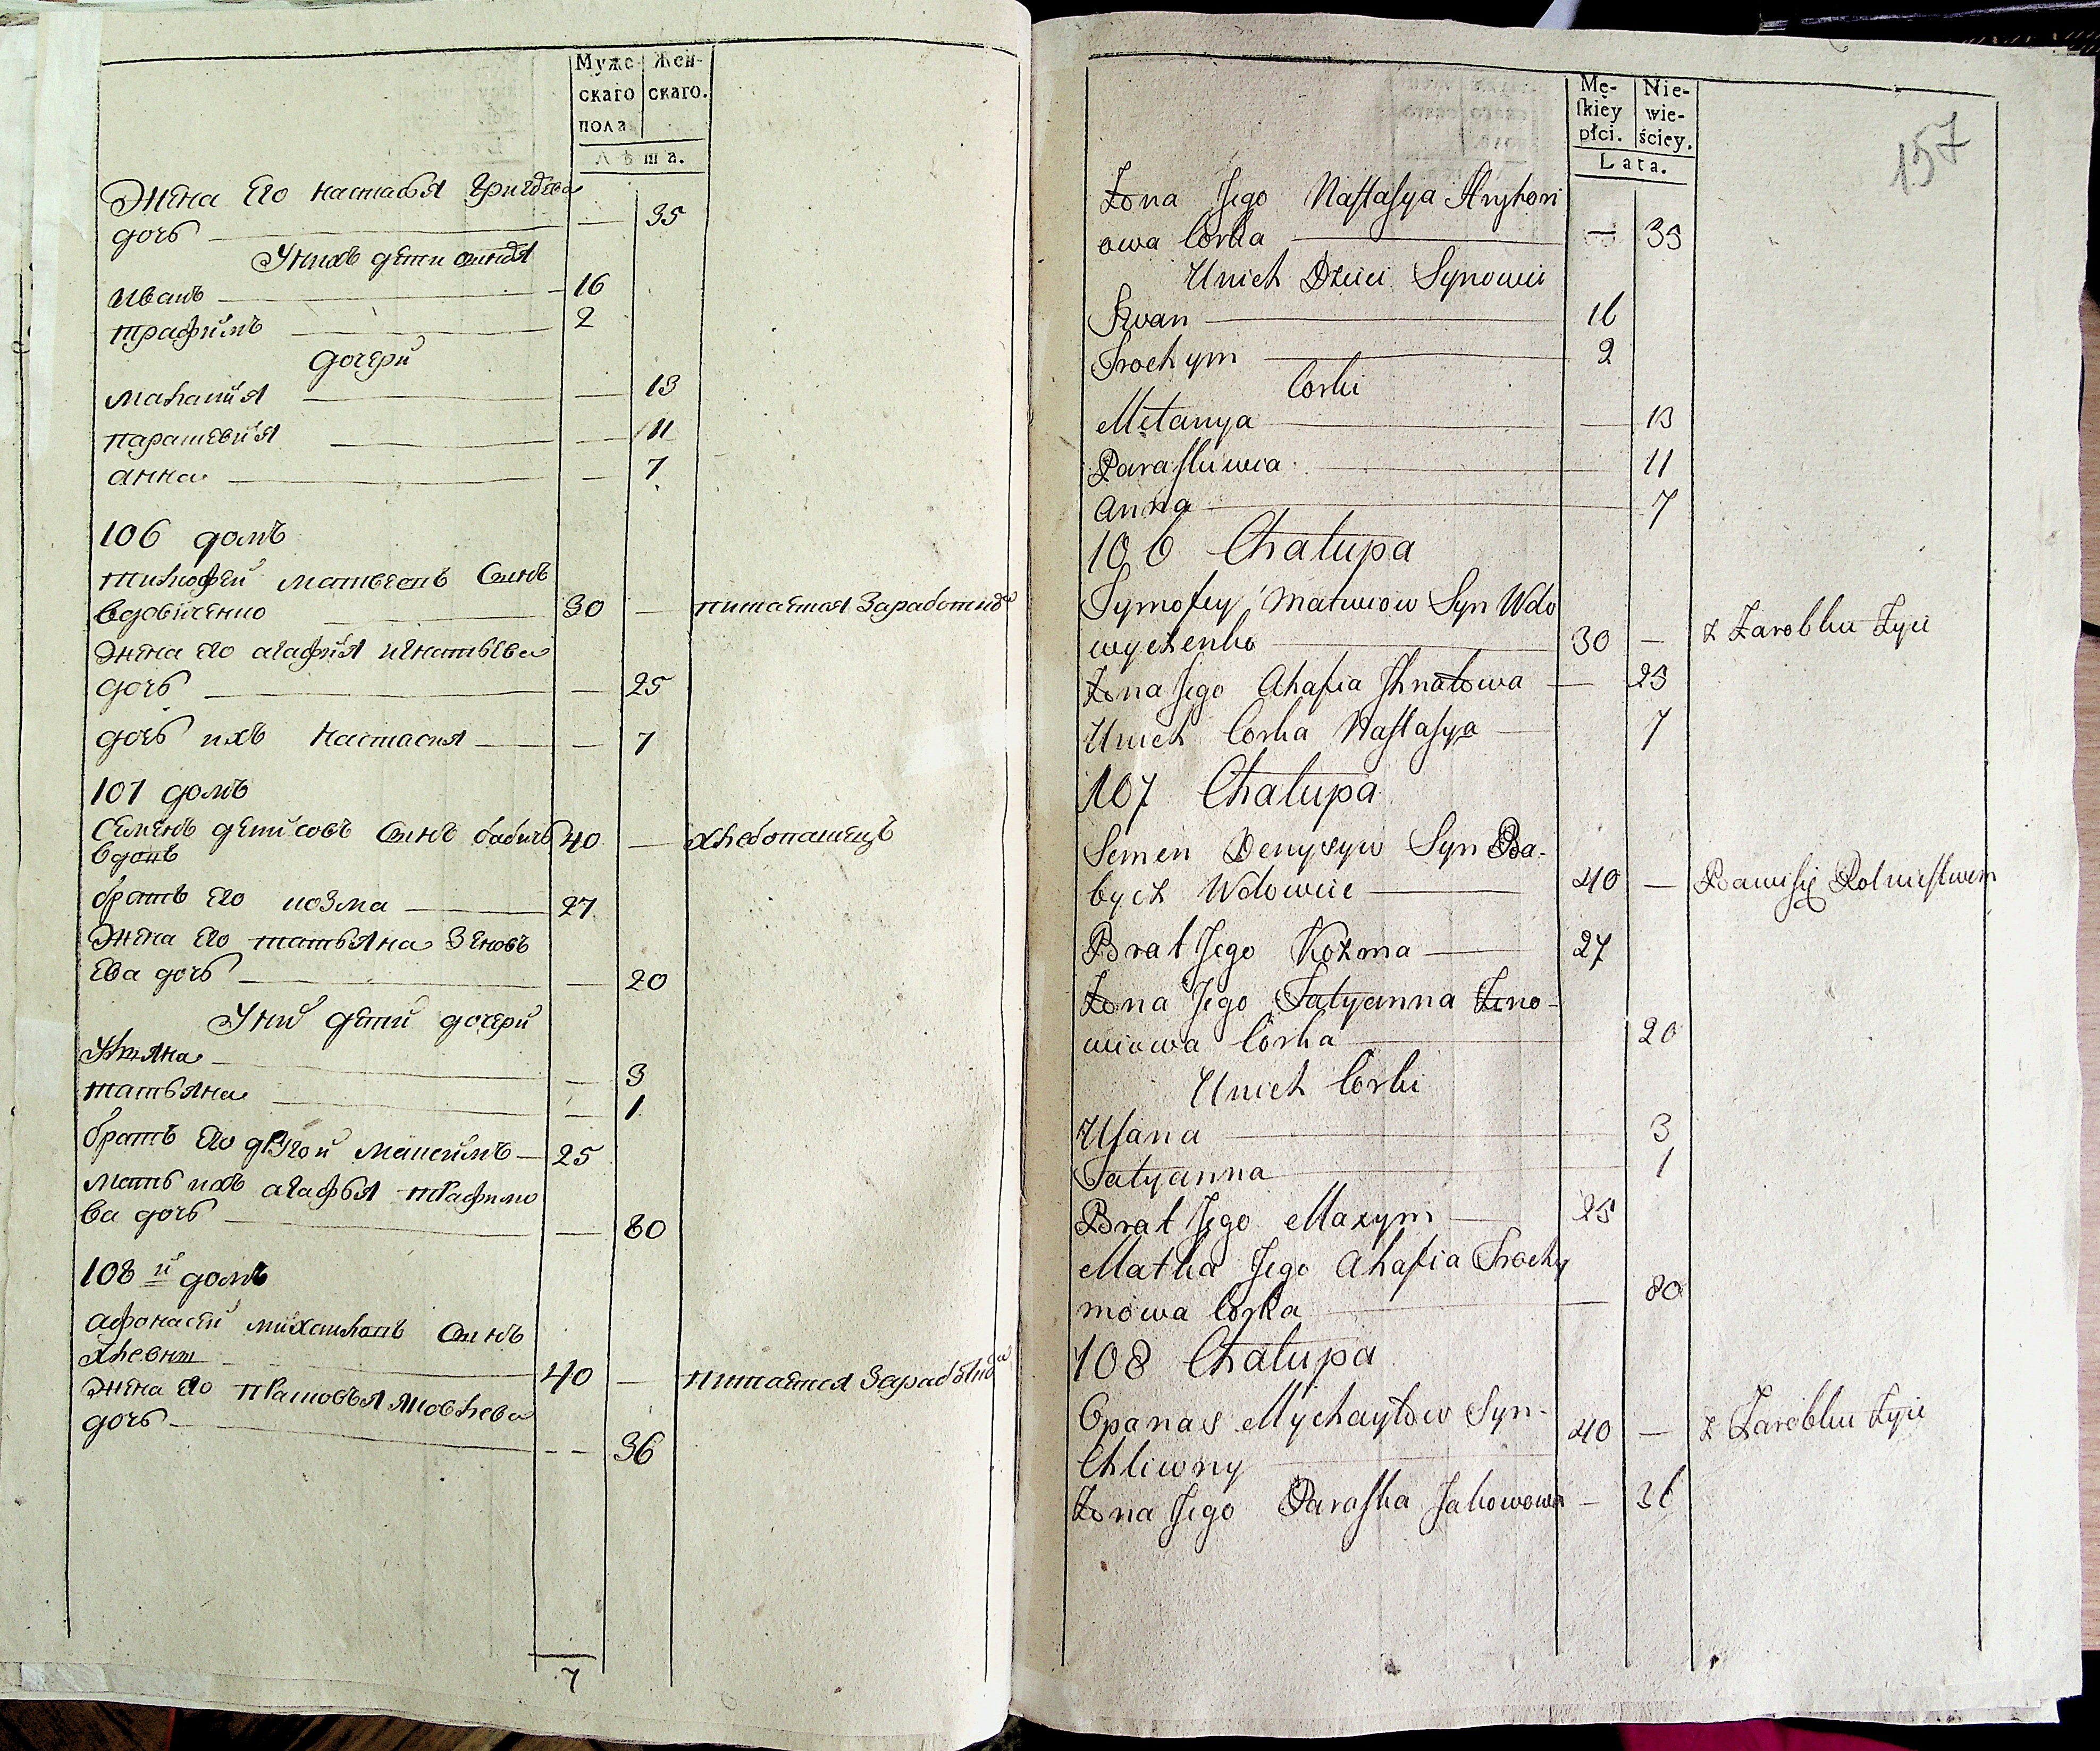 Муже-
скаго
пола
Жен-
скаго.
Лѣта.
Жена Его настасья Григорева
дочь — 35
У нихъ дети сыновя
иванъ — 16
трафимъ — 2
дочери
малания — 13
парасковия — 11
анна — 7
106 домъ
тимофей матвеевъ Сынъ
вдовиченко 30 — питается Заработкою
жена его агафия игнатьева
дочь — 25
дочь ихъ настасия — 7
107 домъ
Семенъ денисовъ Сынъ бабичь 40 — хлебопашецъ
вдовъ
братъ Его козма — 27
жена Его татьяна Зеновъ
ева дочь — 20
У них дети дочери
Ульяна — 3
татьяна — 1
братъ Его другой максимъ — 25
мать ихъ агафья трафимо
ва дочь — 80
108 й домъ
афонасей михайловъ Сынъ
хлевны 40 — питается Заработкою
жена Его парасковья яковлева
дочь — — 36
7
Mę-
skiéy
płci.
Nie-
wie-
ściey.
Lata.
157
Żona Jego Nastasya Hryhori
owa Corka — 35
U nich Dzieci Synowie
Iwan — 16
Trochym — 2
Corki
Mełanya — 13
Paraskiewia — 11
Anna — 7
106 Chałupa
Tymofey Matwiow Syn Wdo
wyczenko 30 — z Zarobku żyie
Żona Jego Ahafia Ihnatowa — 25
U nich Corka Nastasya — 7
107 Chałupa
Semen Denysyw Syn Ba-
bycz Wdowiec 40 — Bawi się Rolnictwem
Brat Jego Kozma — 27
Żona Jego Tatyanna Zeno-
wiowa Corka — 20
U nich Corki
Ulana — 3
Tatyanna — 1
Brat Jego Maxym — 25
Matka Jego Ahafia Trochy
mowa Corka — 80
108 Chałupa
Opanas Mychayłow Syn
Chliwny 40 — z Zarobku żyie
Żona Jego Paraska Jakowowa — 36